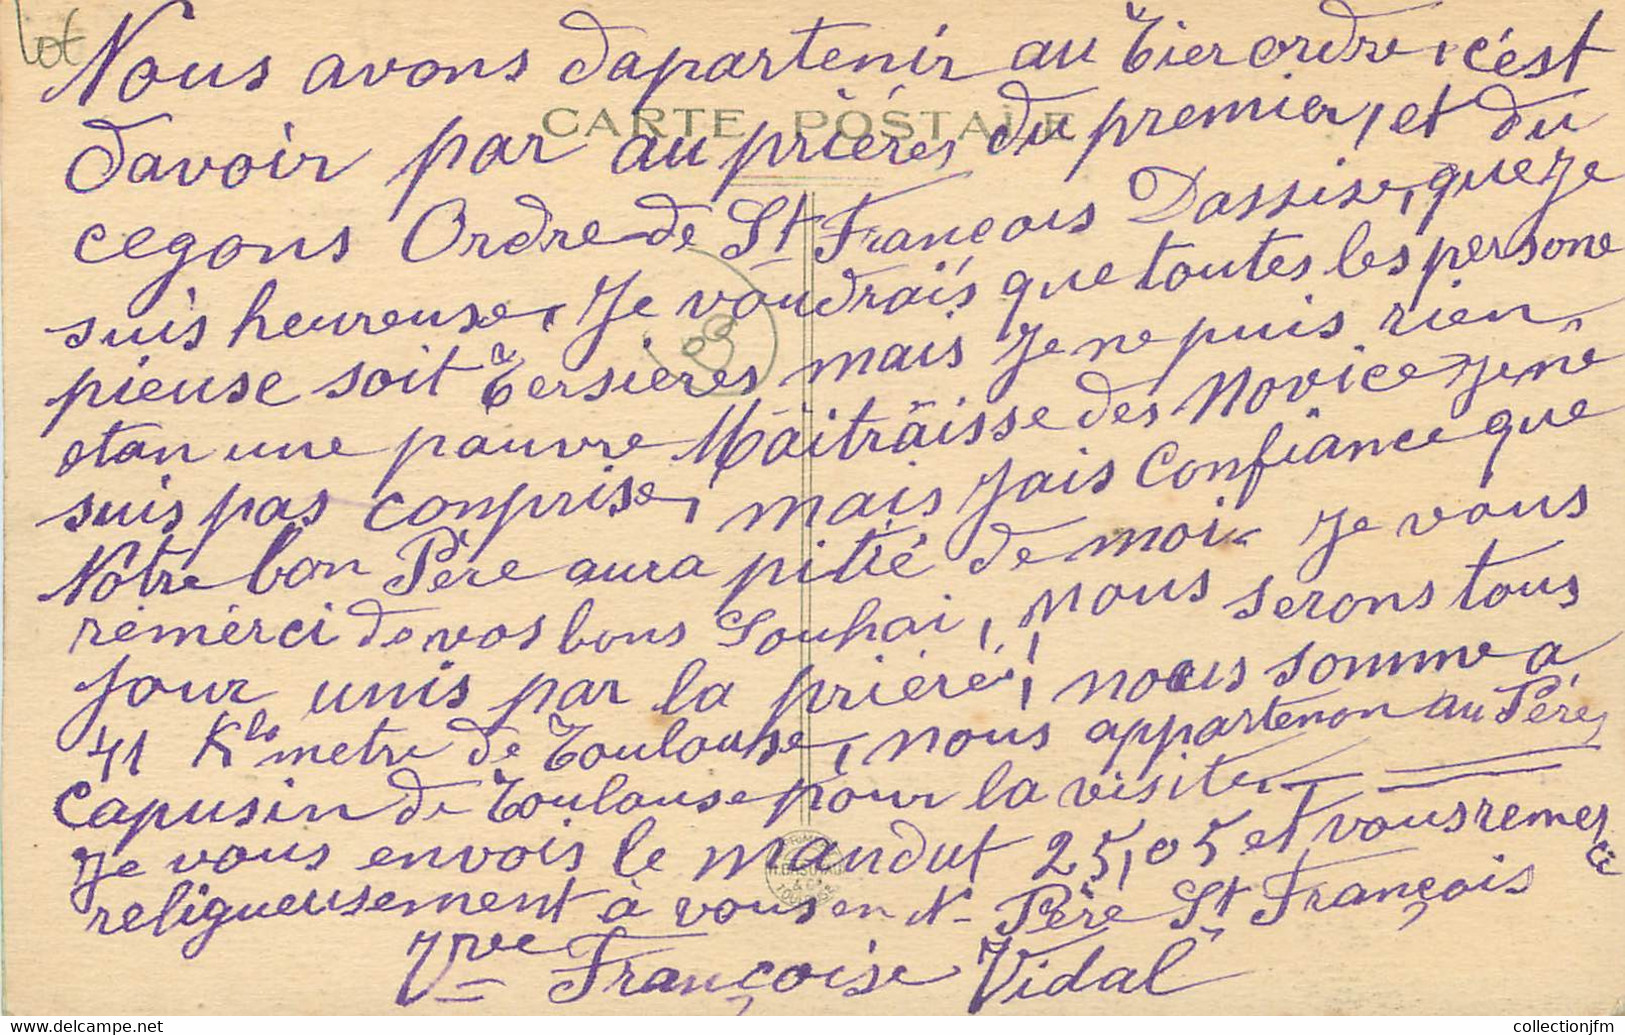 lot
Nous avons dapartenir au Tier ordre, c'est
CARTE POSTALE
davoir par au prières, du premier, et du
cegons Ordre de St François Dassise, que je
suis heureuse, Je voudrais que toutes les persone
pieuse soit Tersières mais je ne puis rien,
etan une pauvre Maitraisse des Novice je ne
suis pas conprise, mais jais Confiance que
Nôtre bon Père aura pitié de moi. Je vous
remerci de vos bons Souhai, nous serons tous
jour unis par la prière, nous somme a
41 Klometre de Toulouse, nous appartenon au Père,
Capusin de Toulouse pour la visite
Je vous envois le mandut 25,05 et vous remer ci
religueusement à vous en N- Père St François
Vve Françoise Vidal
collectionjfm